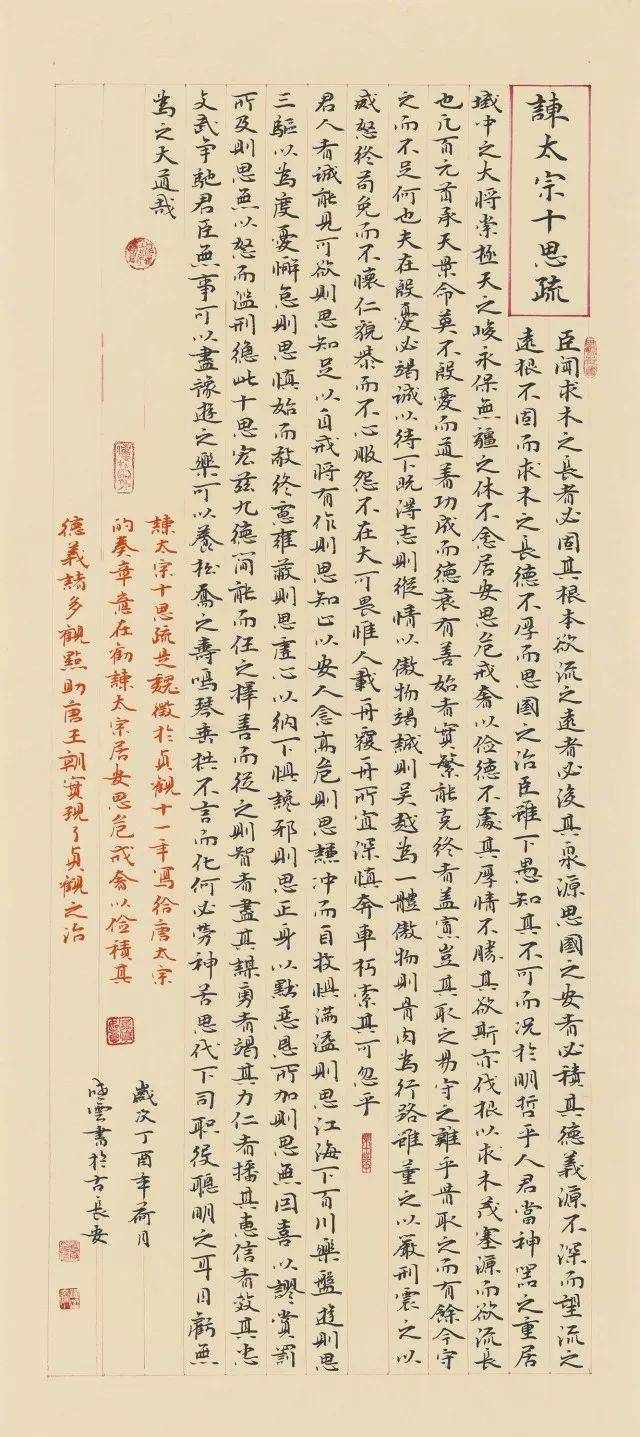 諫太宗十思疏
臣聞求木之長者必固其根本欲流之遠者必浚其泉源思國之安者必積其德義源不深而望流之
遠根不固而求木之長德不厚而思國之治臣雖下愚知其不可而況於明哲乎人君當神器之重居
域中之大將崇極天之峻永保無疆之休不念居安思危戒奢以儉德不處其厚情不勝其欲斯亦伐根以求木茂塞源而欲流長
也凡百元首承天景命莫不殷憂而道著功成而德衰有善始者實繁能克終者蓋寡豈其取之易守之難乎昔取之而有餘今守
之而不足何也夫在殷憂必竭誠以待下既得志則縱情以傲物竭誠則吳越為一體傲物則骨肉為行路雖董之以嚴刑震之以
威怒終苟免而不懷仁貌恭而不心服怨不在大可畏惟人載舟覆舟所宜深慎奔車朽索其可忽乎
君人者誠能見可欲則思知足以自戒將有作則思知止以安人念高危則思謙沖而自牧懼滿溢則思江海下百川樂盤遊則思
三驅以為度憂懈怠則思慎始而敬終慮壅蔽則思虛心以納下懼讒邪則思正身以黜惡恩所加則思無因喜以謬賞罰
所及則思無以怒而濫刑總此十思宏茲九德簡能而任之擇善而從之則智者盡其謀勇者竭其力仁者播其惠信者效其忠
文武爭馳君臣無事可以盡豫遊之樂可以養松喬之壽鳴琴垂拱不言而化何必勞神苦思代下司職役聰明之耳目虧無
為之大道哉
諫太宗十思疏是魏徵於貞觀十一年寫給唐太宗
的奏章意在勸諫太宗居安思危戒奢以儉積其
德義諸多觀點助唐王朝實現了貞觀之治
歲次丁酉年荷月
雲書於古長安